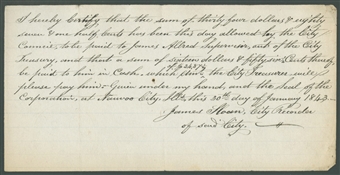 I hereby Certify that the sum of thirty four dollars & eighty
seven & one half Cents has been this day allowed by the City
Council to be paid to James Allred Supervisor, out of the City
Treasury, and that a sum of sixteen dollars & fifty six Cents thereby
be paid to him in Cash, which sum the City Treasurer will
please pay him. Given under my hand, and the seal of the
Corporation, at Nauvoo City Ills. this 30th day of January 1843
James Sloan, City Recorder
of said City.